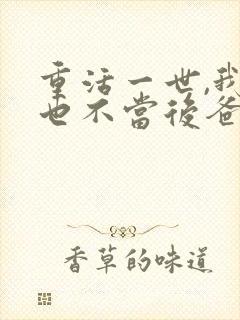 重活一世,我
也不當後爸
香草的味道